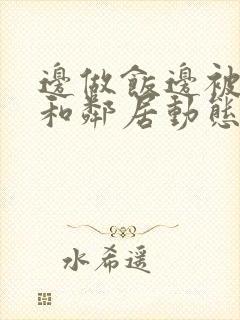 邊做飯邊被
和鄰居動態
水希遥